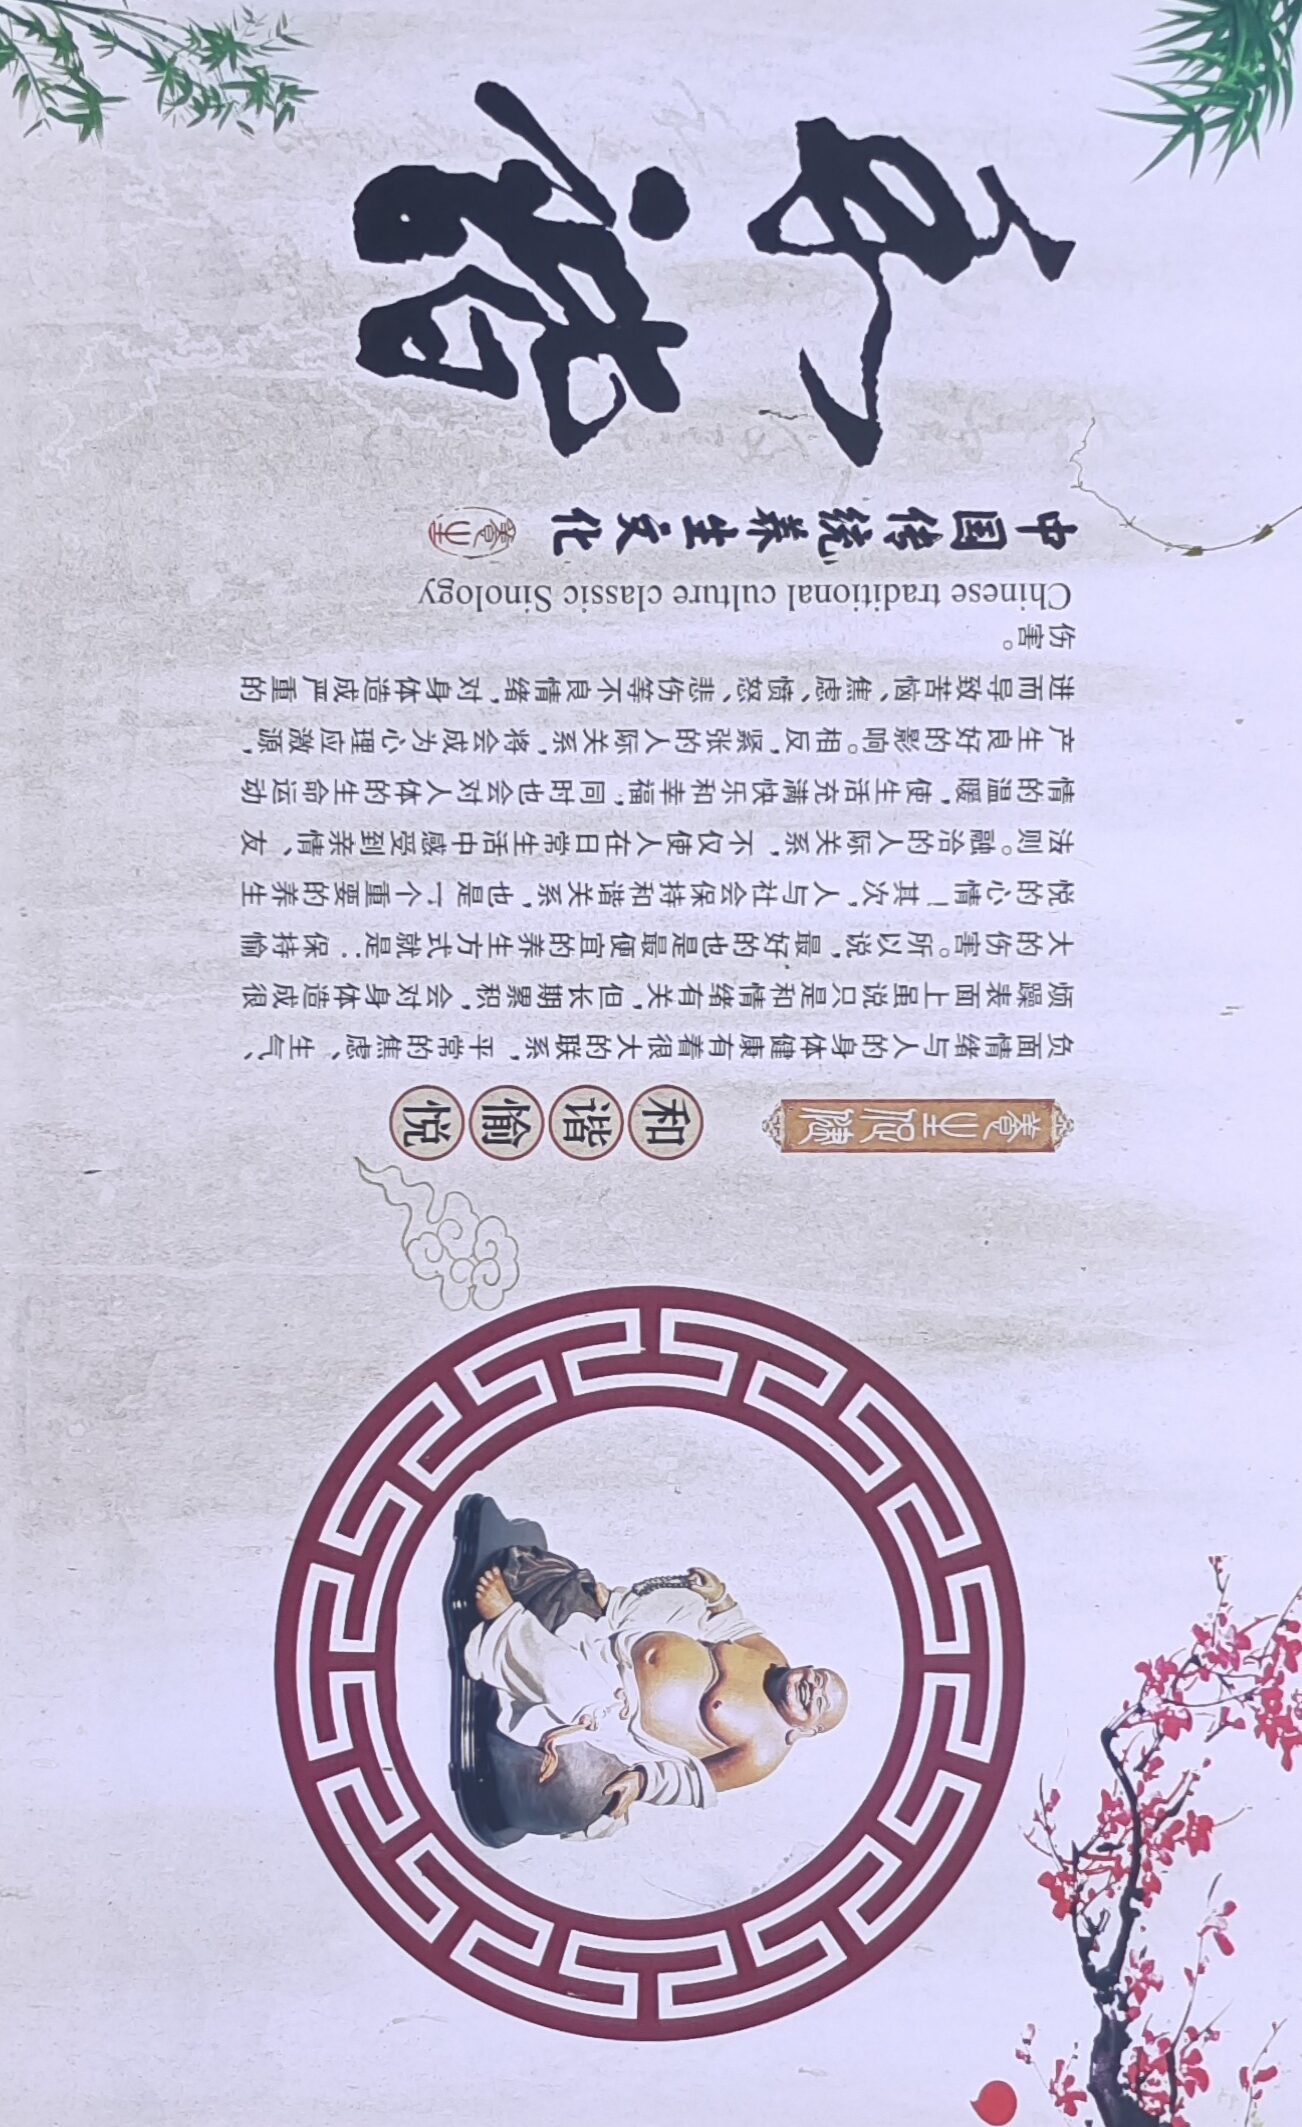 和谐愉悦
负面情绪与人的身体健康有着很大的联系，平常的焦虑、生气、
烦躁表面上虽说只是和情绪有关，但长期累积，会对身体造成很
大的伤害。所以说，最好的也是最便宜的养生方式就是：保持愉
悦的心情！其次，人与社会保持和谐关系，也是一个重要的养生
法则。融洽的人际关系，不仅使人在日常生活中感受到亲情、友
情的温暖，使生活充满快乐和幸福，同时也会对人体的生命运动
产生良好的影响。相反，紧张的人际关系，将会成为心理应激源，
进而导致苦恼、焦虑、愤怒、悲伤等不良情绪，对身体造成严重的
伤害。
Chinese traditional culture classic Sinology
中国传统养生文化
養生